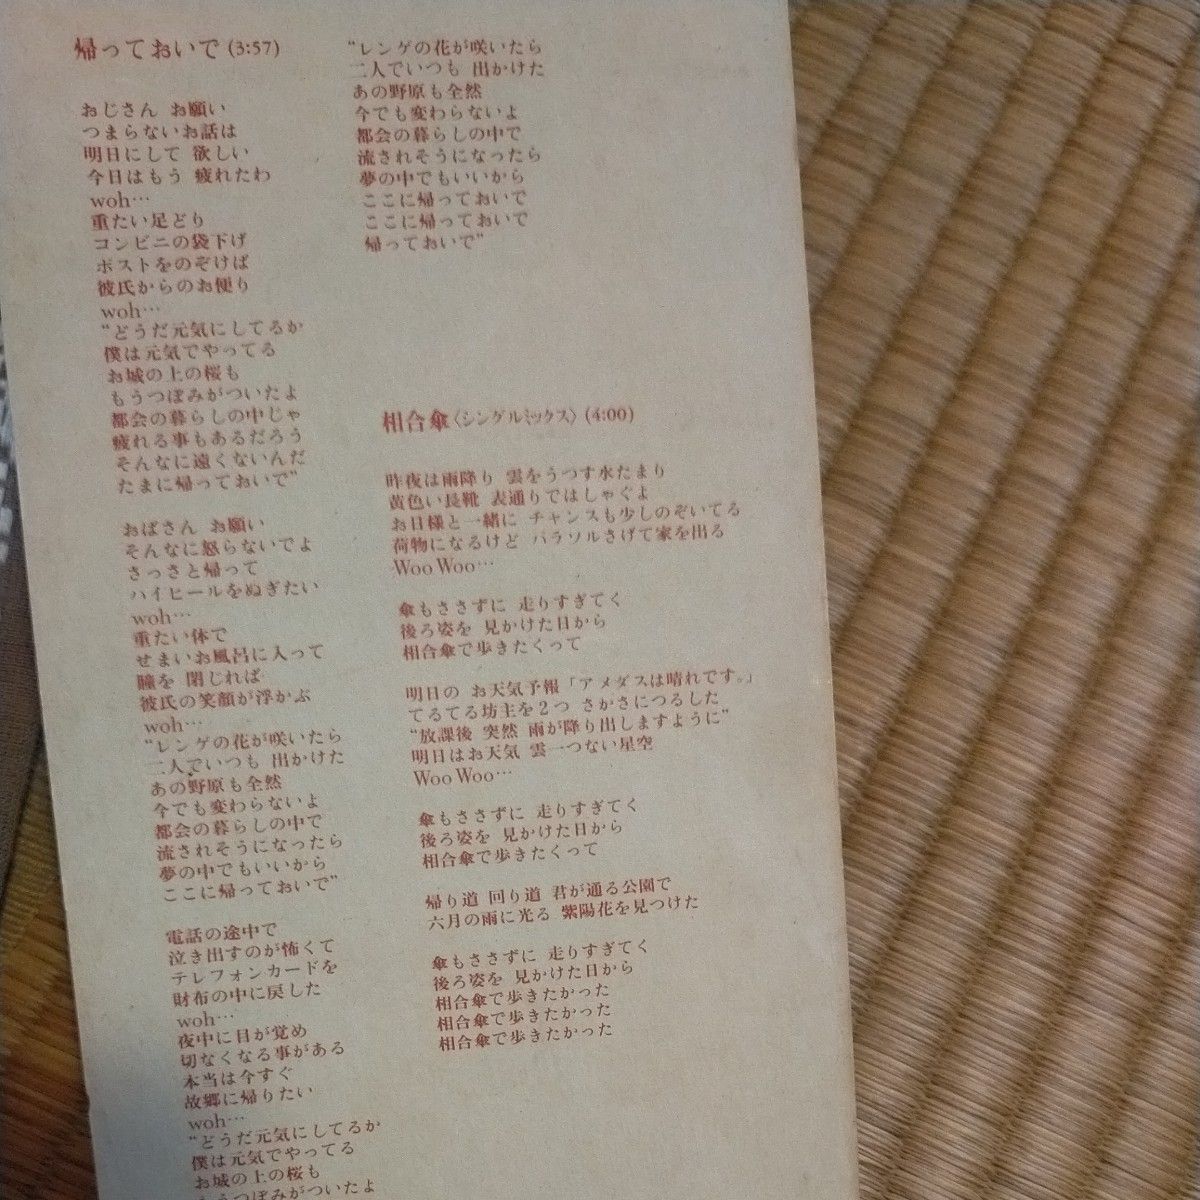 帰っておいで (3:57)
おじさん お願い
つまらないお話は
明日にして 欲しい
今日はもう 疲れたわ
woh…
重たい足どり
コンビニの袋下げ
ポストをのぞけば
彼氏からのお便り
woh…
“どうだ元気にしてるか
僕は元気でやってる
お城の上の桜も
もうつぼみがついたよ
都会の暮らしの中じゃ
疲れる事もあるだろう
そんなに遠くないんだ
たまに帰っておいで”
おばさん お願い
そんなに怒らないでよ
さっさと帰って
ハイヒールをぬぎたい
woh…
重たい体で
せまいお風呂に入って
瞳を 閉じれば
彼氏の笑顔が浮かぶ
woh…
“レンゲの花が咲いたら
二人でいつも 出かけた
あの野原も全然
今でも変わらないよ
都会の暮らしの中で
流されそうになったら
夢の中でもいいから
ここに帰っておいで”
電話の途中で
泣き出すのが怖くて
テレフォンカードを
財布の中に戻した
woh…
夜中に目が覚め
切なくなる事がある
本当は今すぐ
故郷に帰りたい
woh…
“どうだ元気にしてるか
僕は元気でやってる
お城の上の桜も
もうつぼみがついたよ
“レンゲの花が咲いたら
二人でいつも 出かけた
あの野原も全然
今でも変わらないよ
都会の暮らしの中で
流されそうになったら
夢の中でもいいから
ここに帰っておいで
ここに帰っておいで
帰っておいで”
相合傘〈シングルミックス〉(4:00)
昨夜は雨降り 雲をうつす水たまり
黄色い長靴 表通りではしゃぐよ
お日様と一緒に チャンスも少しのぞいてる
荷物になるけど パラソルさげて家を出る
Woo Woo…
傘もささずに 走りすぎてく
後ろ姿を 見かけた日から
相合傘で歩きたくって
明日の お天気予報「アメダスは晴れです。」
てるてる坊主を2つ さかさにつるした
“放課後 突然 雨が降り出しますように”
明日はお天気 雲一つない星空
Woo Woo…
傘もささずに 走りすぎてく
後ろ姿を 見かけた日から
相合傘で歩きたくって
帰り道 回り道 君が通る公園で
六月の雨に光る 紫陽花を見つけた
傘もささずに 走りすぎてく
後ろ姿を 見かけた日から
相合傘で歩きたかった
相合傘で歩きたかった
相合傘で歩きたかった